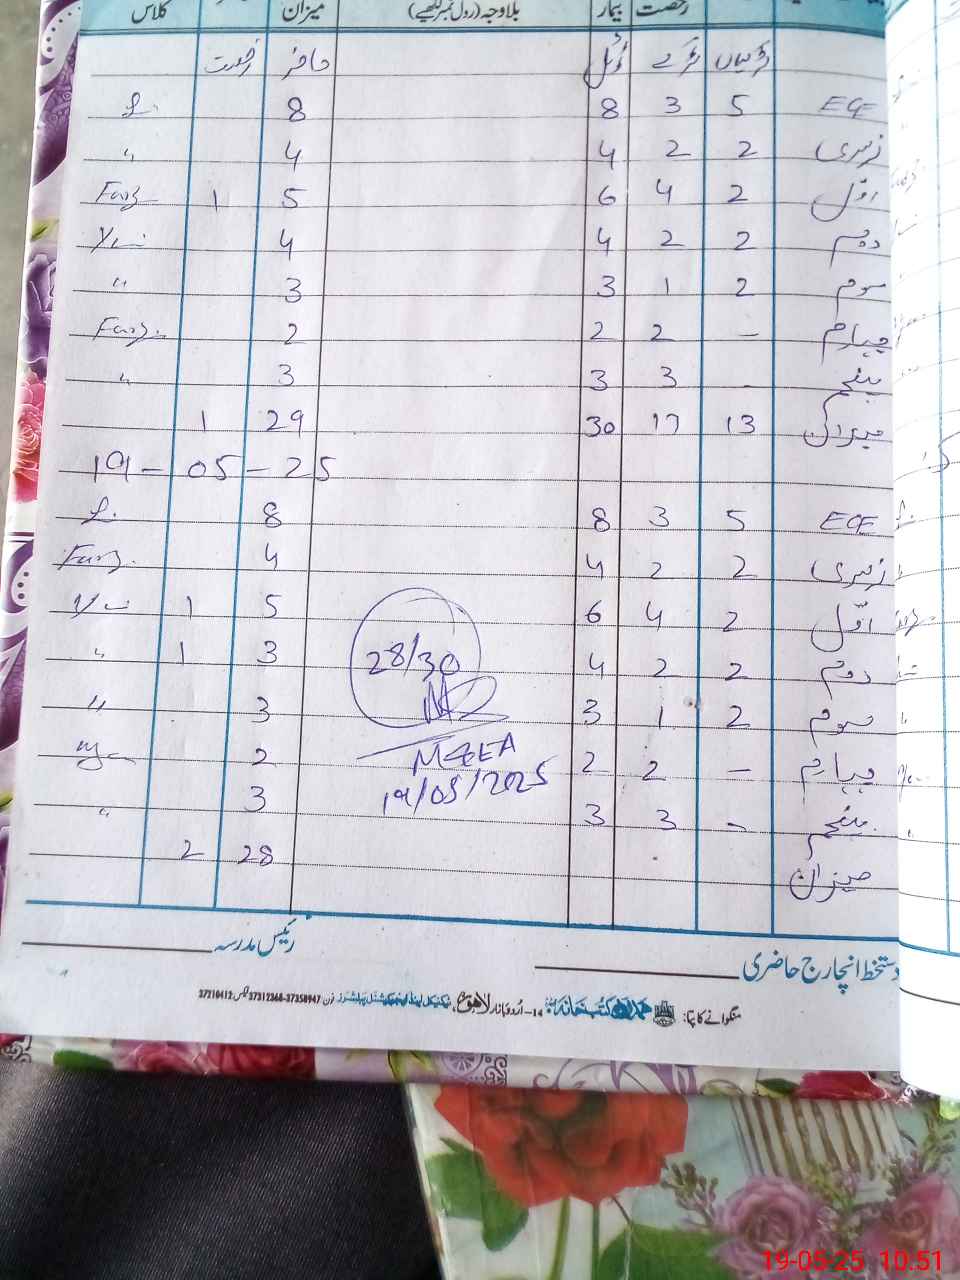 رخصت بیمار بلاوجہ (رول نمبر لکھیے) میزان کلاس
لڑکیاں لڑکے ٹوٹل حاضر رخصت
ECE 5 3 8 8
نرسری 2 2 4 4 "
اوّل 2 4 6 5 1
دوم 2 2 4 4
سوم 2 1 3 3 "
چہارم - 2 2 2
پنجم - 3 3 3 "
میزان 13 17 30 29 1
19-05-25
ECE 5 3 8 8
نرسری 2 2 4 4
اوّل 2 4 6 5 1
دوم 2 2 4 3 1 "
سوم 2 1 3 3 "
چہارم - 2 2 2
پنجم - 3 3 3 "
میزان 28 2
28/30
MEEA
19/05/2025
دستخط انچارج حاضری
رئیس مدرسہ
منگوانے کا پتا: کتب خانہ 14-اُردو بازار لاہور، فون 37312368-37358947 فیکس: 37210412
19-05-25 10:51